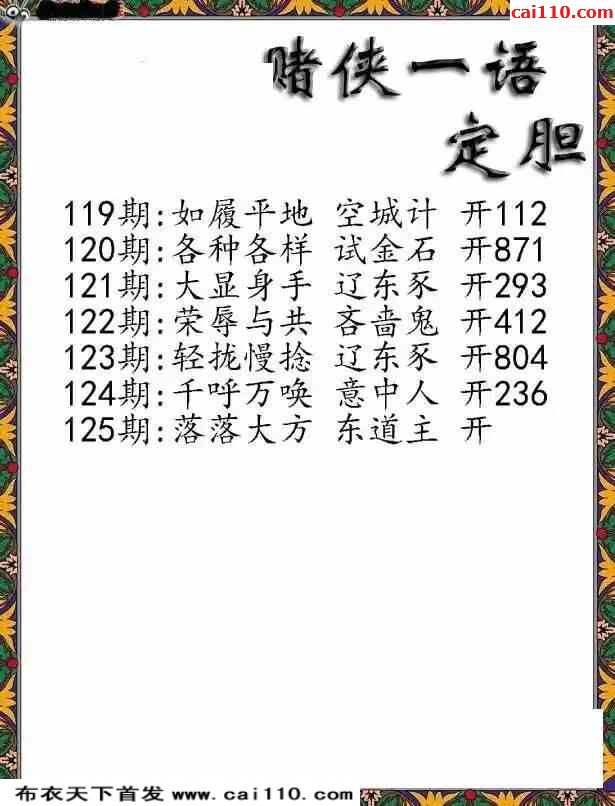 cai110.com
赌侠一语
定胆
119期:如履平地 空城计 开112
120期:各种各样 试金石 开871
121期:大显身手 辽东豕 开293
122期:荣辱与共 吝啬鬼 开412
123期:轻拢慢捻 辽东豕 开804
124期:千呼万唤 意中人 开236
125期:落落大方 东道主 开
布衣天下首发 www.cai110.com